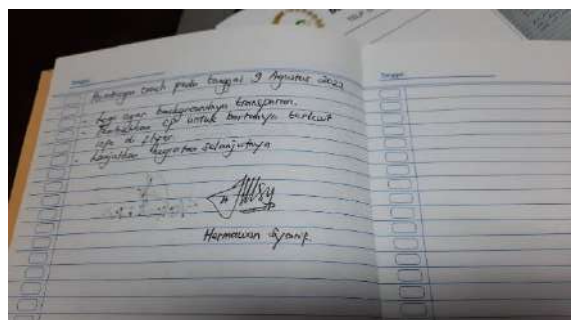 Tanggal:
Tanggal:
Bimbingan coach pada tanggal 9 Agustus 2022
- Logo agar backgroundnya transparan.
- Tambahkan cp untuk bertanya terkait
apa di flyer
- Lanjutkan kegiatan selanjutnya
Hermawan Syarif